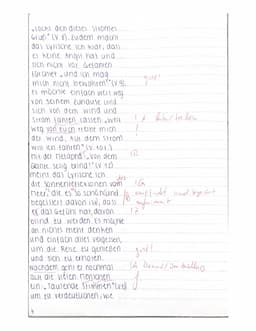 „lockt den dieses Stromes
Gruß" (V.8). Zudem macht
das lyrische Ich klar, dass
es keine Angst hat und
sich nicht vor Gefahren
fürchtet „und ich mag
mich nicht bewahren!" (V.9). gut!
es möchte einfach weit weg
von seinem Zuhause und
sich von dem Wind und
Strom fahren lassen „Weit
weg von euch treibt mich
der Wind, auf dem Strom
will ich fahren" (V.10f.)
mit der Metapher „Von dem
Glanze selig blind!" (V.12)
meint das lyrische Ich
die Sonnenreflektionen vom
Meer, die es so schön und
begeistert davon ist, dass
es das Gefühl hat, davon
blind zu werden. Es möchte
an nichts mehr denken
und einfach alles vergessen,
um die Reise zu genießen
und sich zu erholen. gut!
Nachdem geht es nochmal
auf die vielen Menschen
ein „Tausende Stimmen" (V.13)
um zu verdeutlichen, wie